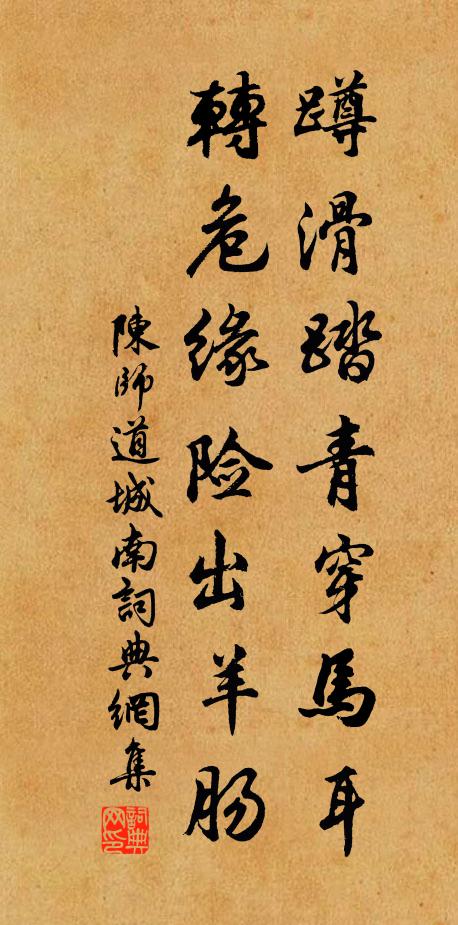 蹲滑踏青穿馬耳
轉危缘险出羊肠
陳師道城南詞典網集
詞典网印